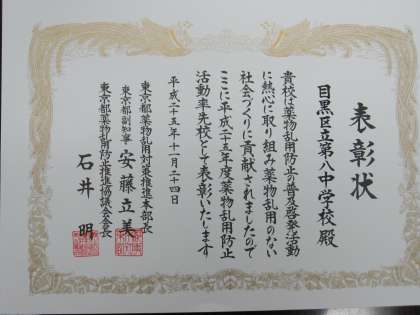 表彰状
目黒区立第八中学校 殿
貴校は薬物乱用防止の普及啓発活動
に熱心に取り組み薬物乱用のない
社会づくりに貢献されましたので
ここに平成二十五年度薬物乱用防止
活動率先校として表彰いたします
平成二十五年十一月二十四日
東京都薬物乱用対策推進本部長
東京都副知事 安藤立美
東京都薬物乱用防止推進協議会会長
石井 明